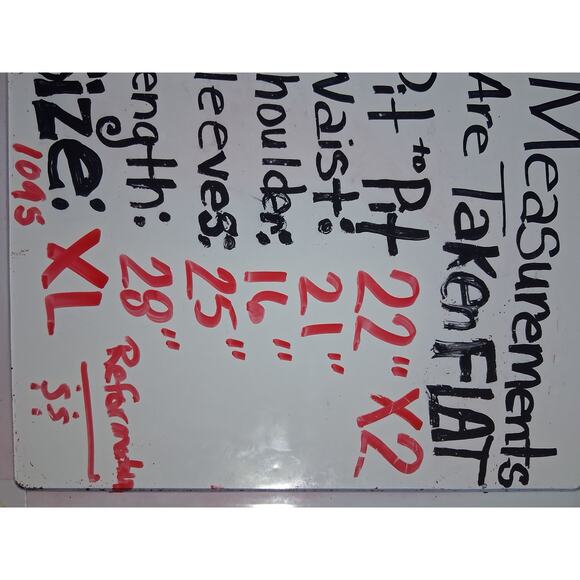 Measurements
Are Taken FLAT
Pit to Pit 22" X2
Waist: 21"
houlder: 16"
leeves: 25"
ength: 28"
Size: XL
1095